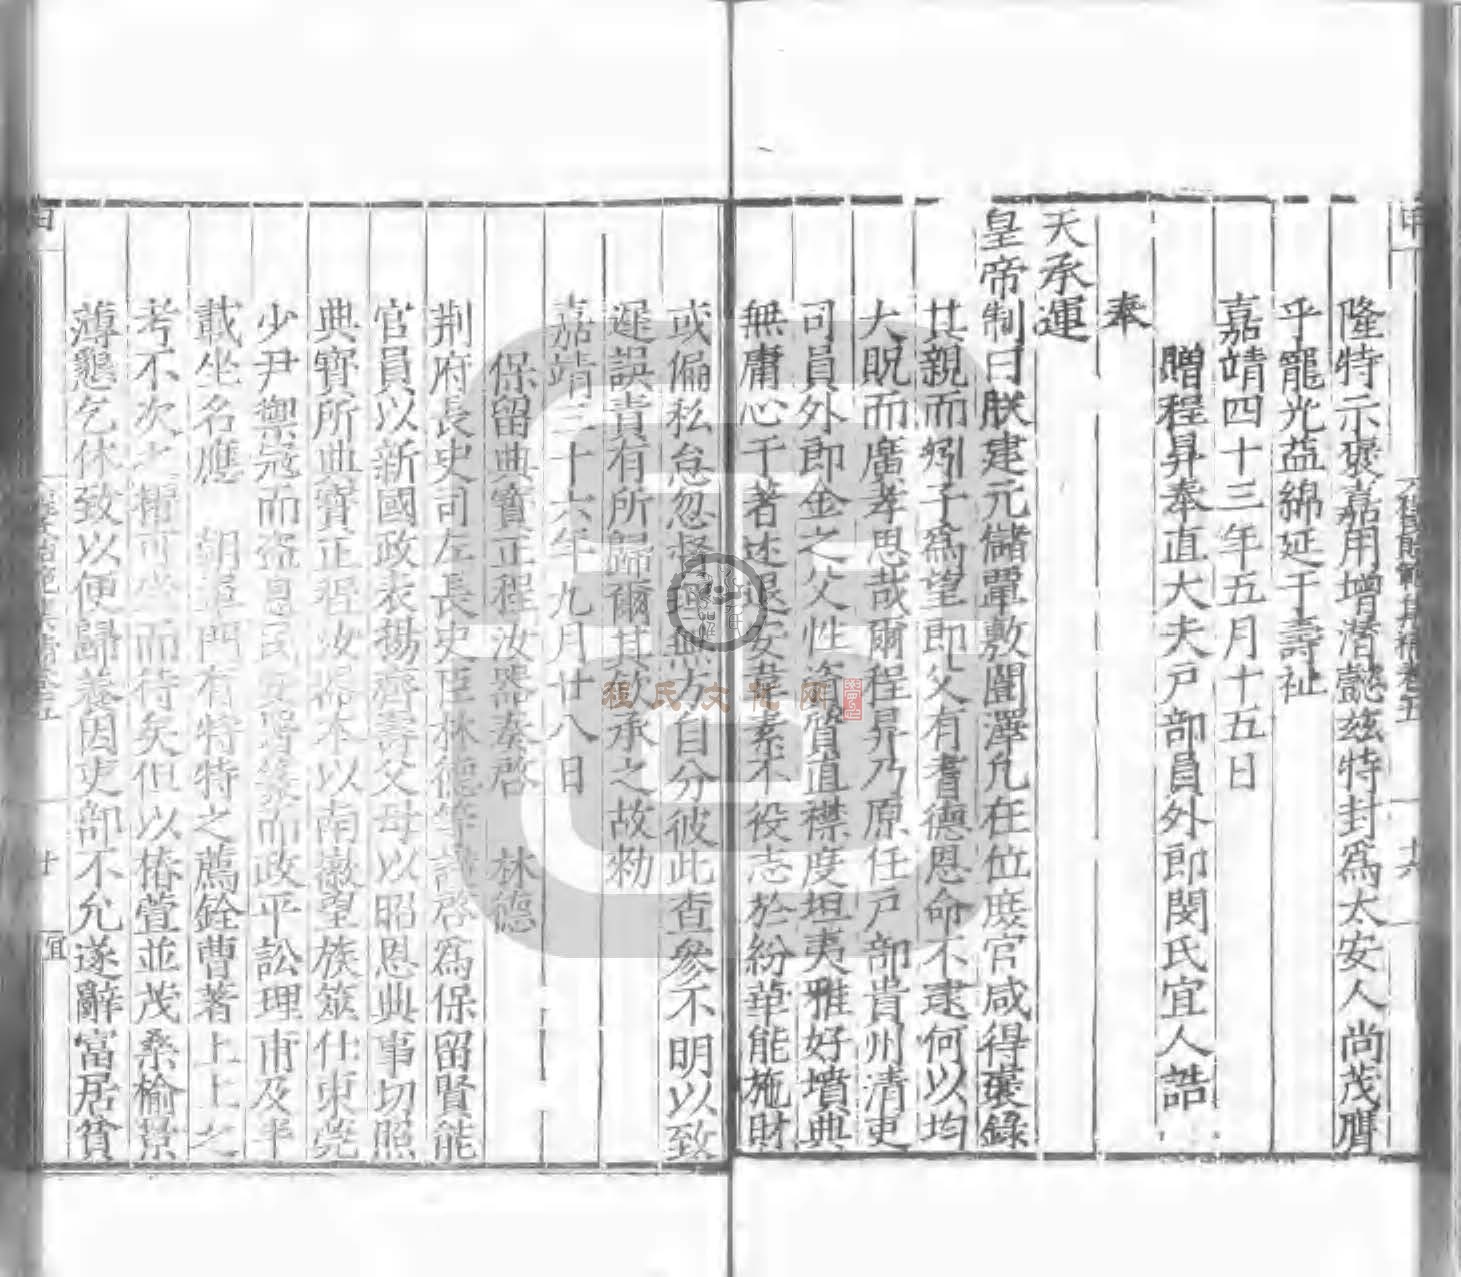 隆特示褒嘉用增潛懿茲特封爲太安人尚茂膺
乎寵光益綿延于壽祉
嘉靖四十三年五月十五日
贈程昇奉直大夫戶部員外郎閔氏宜人誥
奉
天承運
皇帝制曰朕建元儲覃敷闓澤凡在位庶官咸得褒錄
其親而矧子爲望郎父有耆德恩命不逮何以均
大貺而廣孝思哉爾程昇乃原任戶部貴州清吏
司員外郎金之父性資質直襟度坦夷雅好墳典
無庸心于著述退安韋素不役志於紛華能施財
或偏私怠忽督理無方自分彼此查參不明以致
遲誤責有所歸爾其欽承之故勑
嘉靖三十六年九月廿八日
保留典寶正程汝器奏啓 林德
荆府長史司左長史臣林德等謹啓爲保留賢能
官員以新國政表揚齊壽父母以昭恩典事切照
典寶所典寶正程汝器本以南徽望族筮仕東莞
少尹禦寇而盜息民安署篆而政平訟理甫及半
載坐名應 朝軍門有特特之薦銓曹著上上之
考不次之擢可坐而待矣但以椿萱並茂桑榆景
薄懇乞休致以便歸養因吏部不允遂辭富居貧
十六
廿
宜